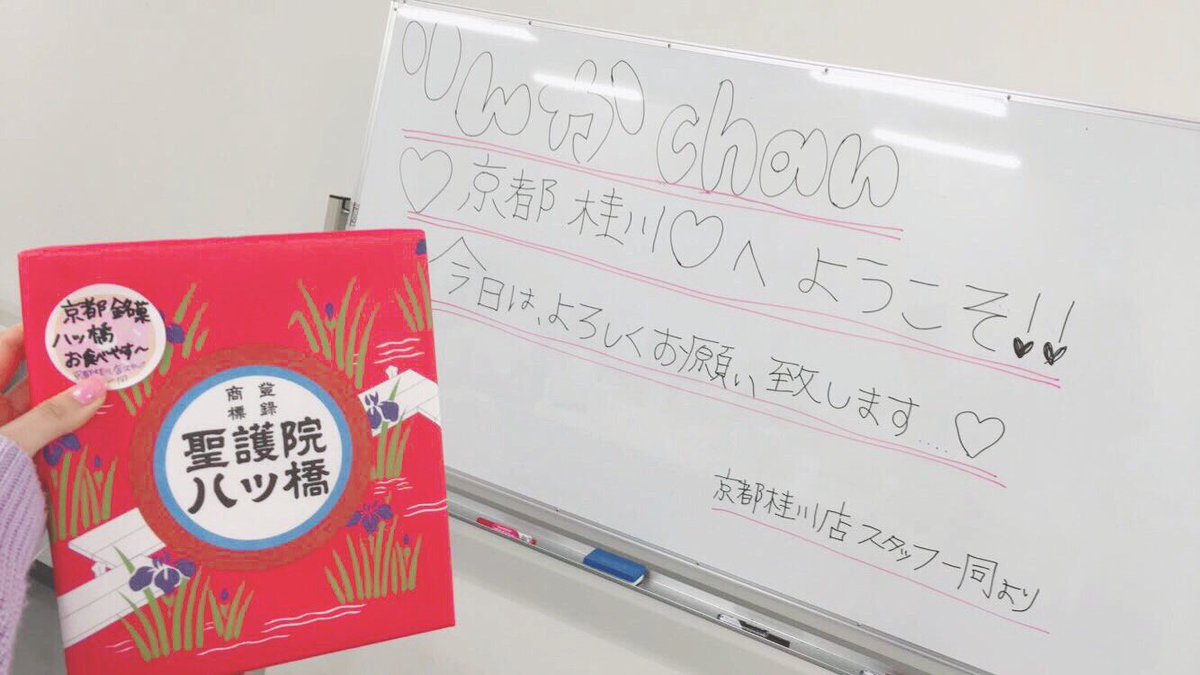 りんか chan
♡京都 桂川♡へ ようこそ!!
今日は、よろしくお願い致します...♡
京都桂川店スタッフ一同より
京都 銘菓
八ッ橋
お食べやす〜
商 登
標 録
聖護院
八ツ橋